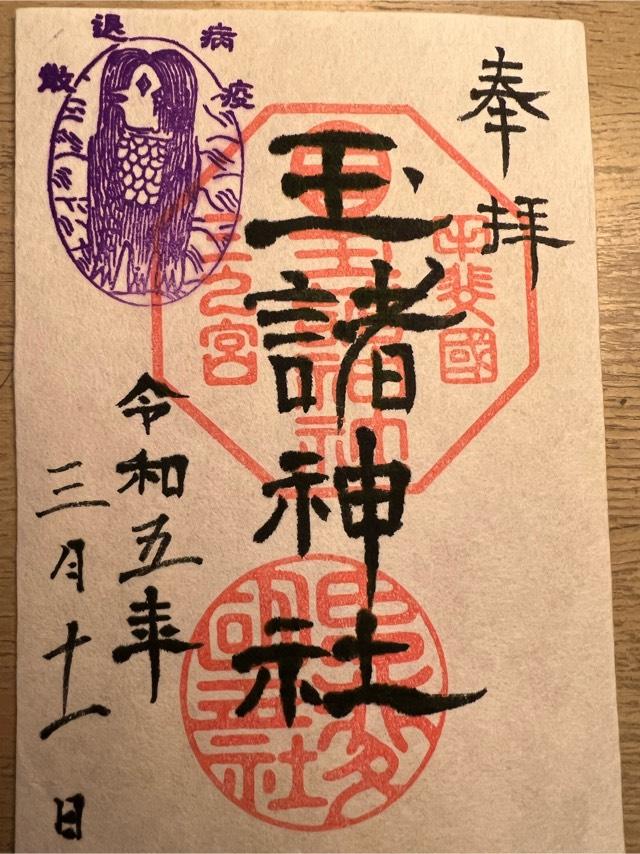 奉拝
甲斐國
玉諸神社
三之宮
玉諸神社
令和五年
三月十一日
病疫退散